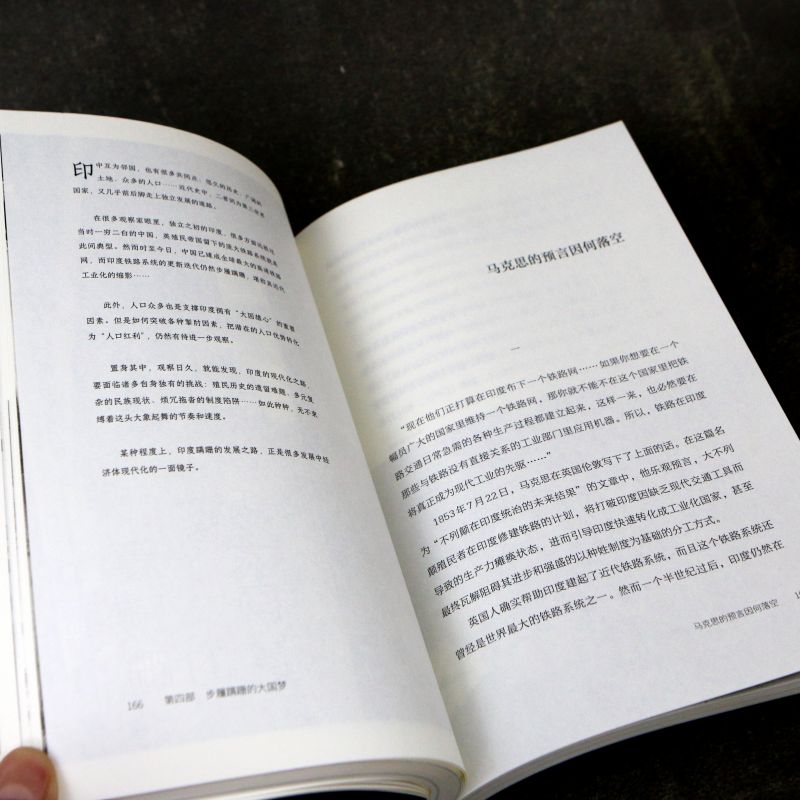 印中互为邻国，也有很多共同点：悠久的历史、广袤的
土地、众多的人口……近代史中，二者同为第三世界
国家，又几乎前后脚走上独立发展的道路。
在很多观察家眼里，独立之初的印度，很多方面远胜过
当时一穷二白的中国，英殖民帝国留下的庞大铁路系统就是
此间典型。然而时至今日，中国已建成全球最大的高速铁路
网，而印度铁路系统的更新迭代仍然步履蹒跚，堪称其近代
工业化的缩影……
此外，人口众多也是支撑印度拥有“大国雄心”的重要
因素。但是如何突破各种掣肘因素，把潜在的人口优势转化
为“人口红利”，仍然有待进一步观察。
置身其中，观察日久，就能发现，印度的现代化之路，
要面临诸多包身独有的挑战：殖民历史的遗留难题、多元复
杂的民族现状、烦冗拖沓的制度陷阱……如此种种，无不束
缚着这头大象起舞的节奏和速度。
某种程度上，印度蹒跚的发展之路，正是很多发展中经
济体现代化的一面镜子。
166 第四部 步履蹒跚的大国梦
马克思的预言因何落空
一
“现在他们正打算在印度布下一个铁路网……如果你想要在一个
幅员广大的国家里维持一个铁路网，那你就不能不在这个国家里把铁
路交通日常急需的各种生产过程都建立起来，这样一来，也必然要在
那些与铁路没有直接关系的工业部门里应用机器。所以，铁路在印度
将真正成为现代工业的先驱……”
1853年7月22日，马克思在英国伦敦写下了上面的话。在这篇名
为“不列颠在印度统治的未来结果”的文章中，他乐观预言，大不列
颠殖民者在印度修建铁路的计划，将打破印度因缺乏现代交通工具而
导致的生产力瘫痪状态，进而引导印度快速转化成工业化国家，甚至
最终瓦解阻碍其进步和强盛的以种姓制度为基础的分工方式。
英国人确实帮助印度建起了近代铁路系统，而且这个铁路系统还
曾经是世界最大的铁路系统之一。然而一个半世纪过后，印度仍然在
马克思的预言因何落空